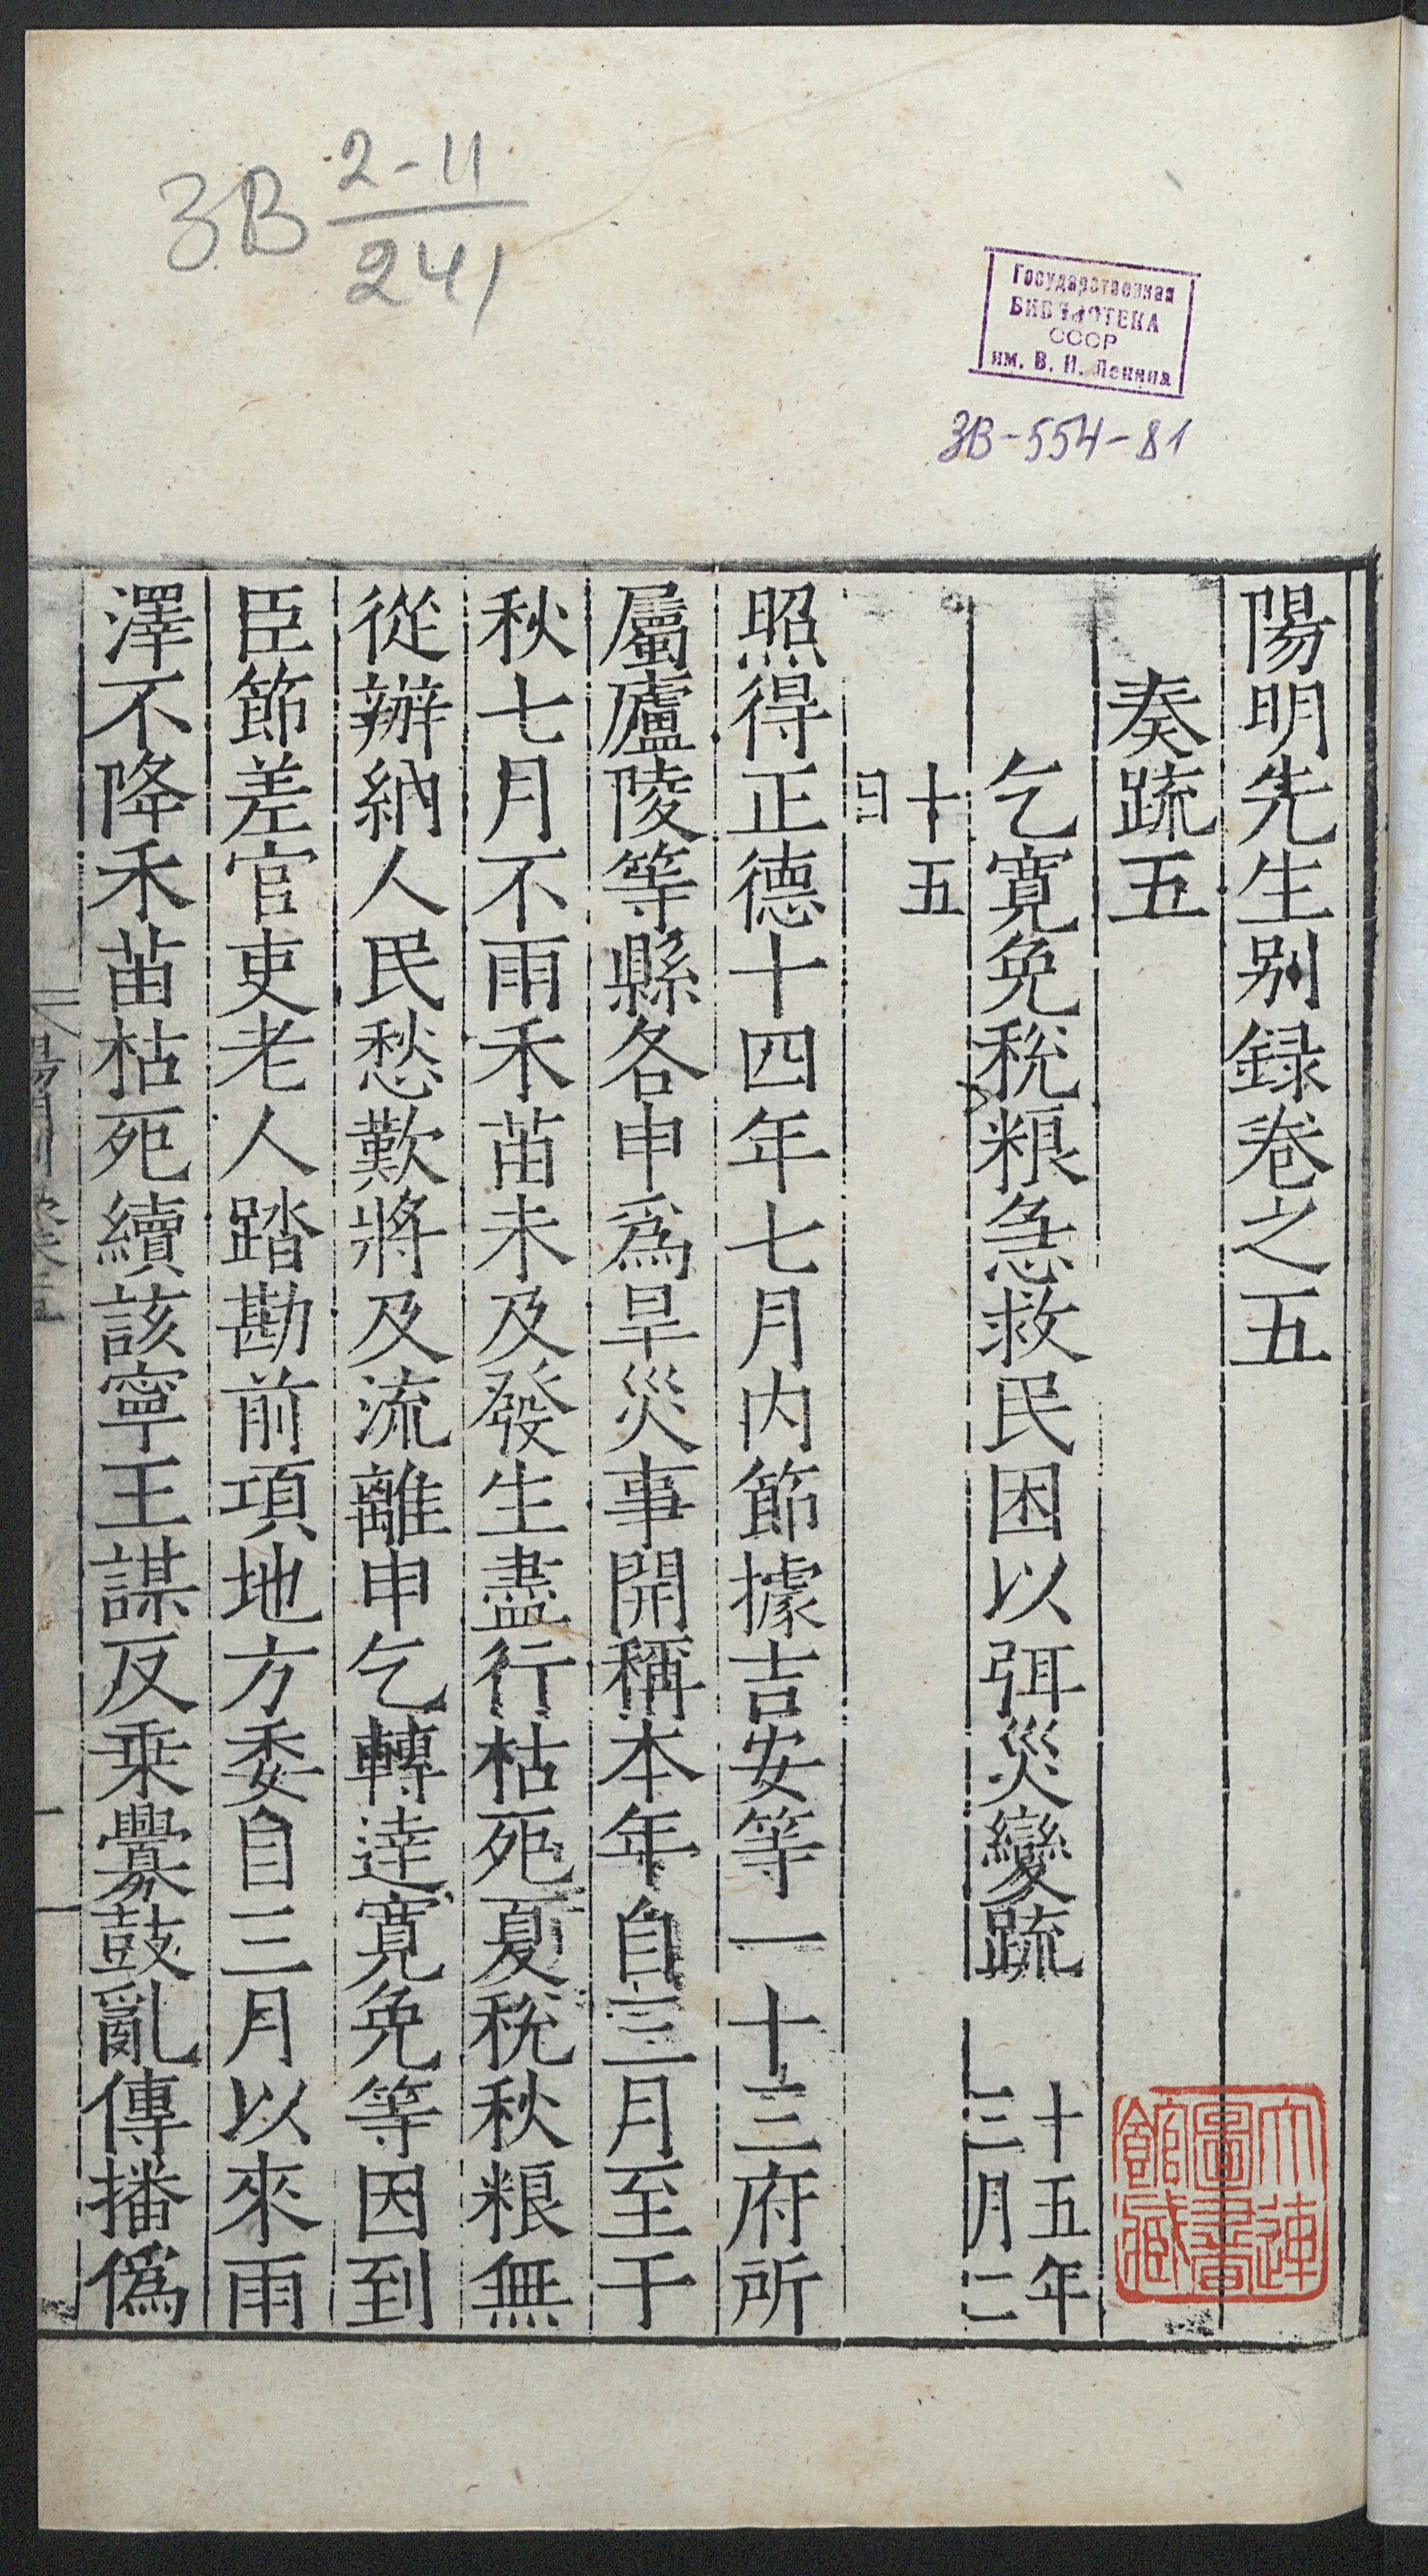 ЗВ 2-11
241
Государственная
БИБЛИОТЕКА
СССР
им. В. И. Ленина
ЗВ-554-81
陽明先生別録卷之五
奏疏五
乞寬免稅粮急救民困以弭災變疏
十五年
三月二
十五
日
照得正德十四年七月内節據吉安等一十三府所
屬廬陵等縣各申爲旱災事開稱本年自三月至于
秋七月不雨禾苗未及發生盡行枯死夏稅秋粮無
從辦納人民愁歎將及流離申乞轉達寬免等因到
臣節差官吏老人踏勘前項地方委自三月以來雨
澤不降禾苗枯死續該寧王謀反乘釁鼓亂傳播僞
大連
圖書
館藏